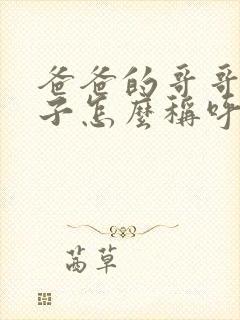 爸爸的哥哥
子怎麼稱呼
茜草